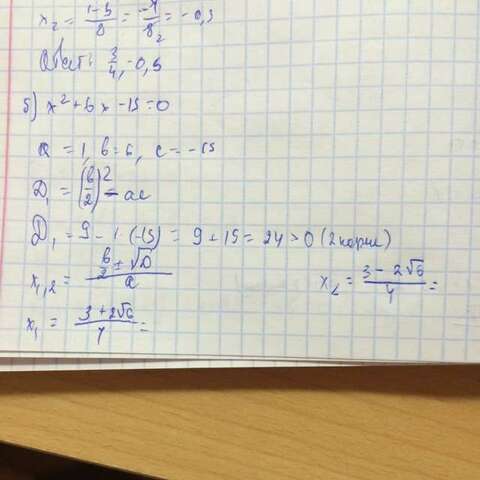 x₂ = (1-5)/8 = -4/8₂ = -0,5
Ответ: 3/4, -0,5
б) x² + 6x - 15 = 0
a = 1, b = 6, c = -15
D₁ = (b/2)² - ac
D₁ = 9 - 1·(-15) = 9 + 15 = 24 > 0 (2 корня)
x₁,₂ = (b/2 ± √D)/a
x₁ = (3 + 2√6)/1 =
x₂ = (3 - 2√6)/1 =